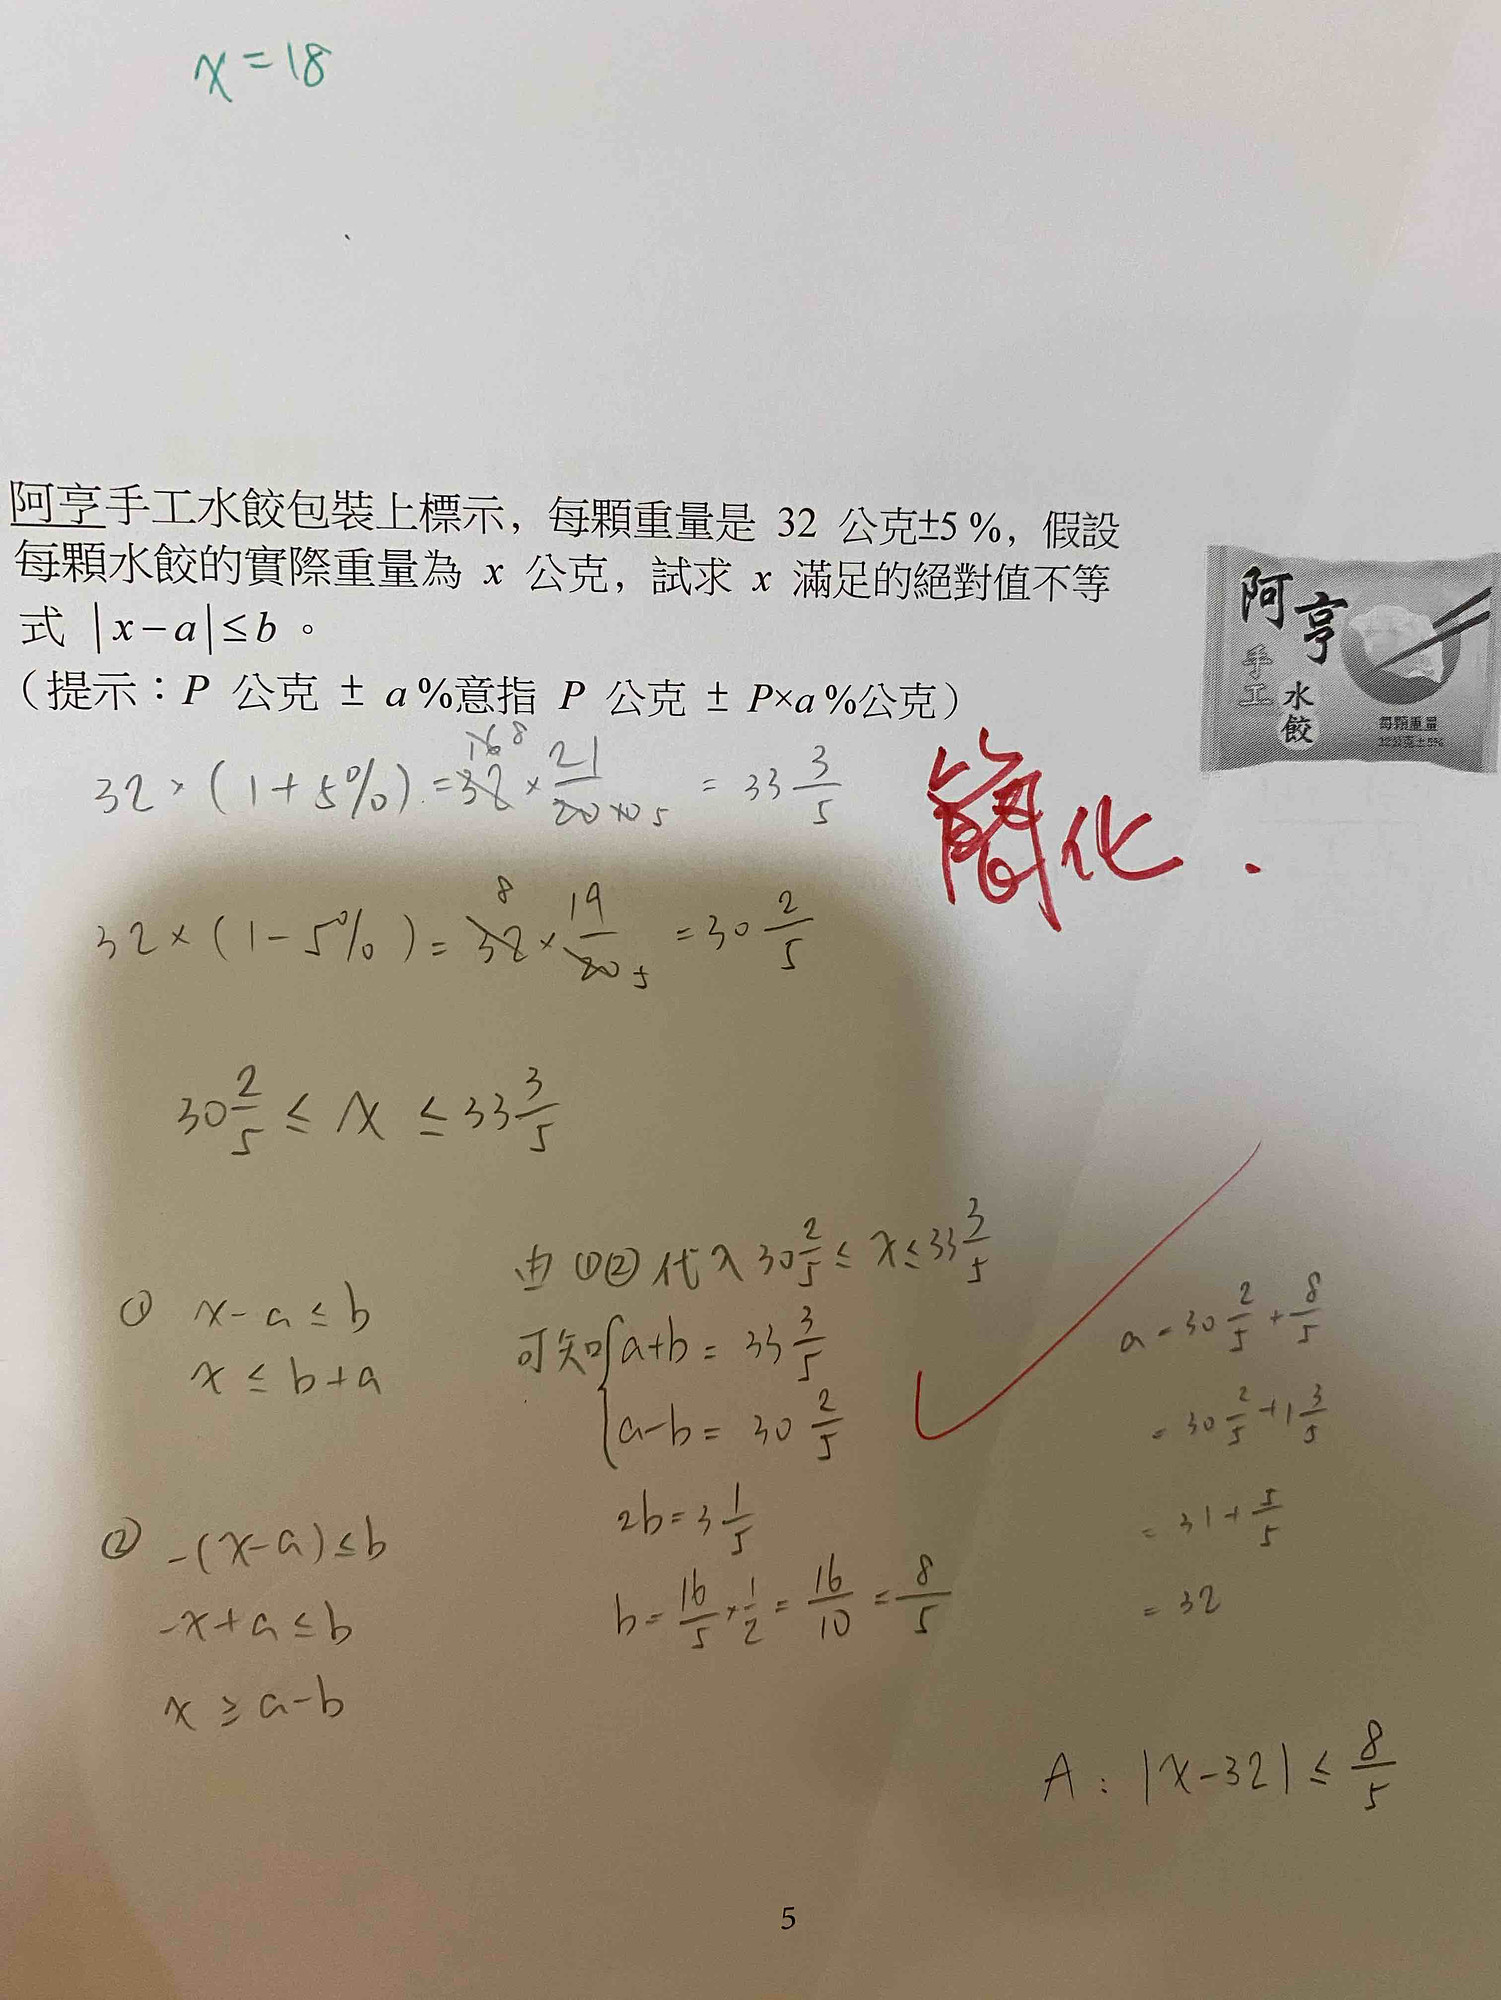 x=18
阿亨手工水餃包裝上標示，每顆重量是 32 公克±5%，假設
每顆水餃的實際重量為 x 公克，試求 x 滿足的絕對值不等
式 |x-a|≤b。
（提示：P 公克 ± a%意指 P 公克 ± P×a%公克）
阿亨
手工
水餃
每顆重量
32公克±5%
32×(1+5%)=32×21/20=33 3/5
簡化.
32×(1-5%)=32×19/20=30 2/5
30 2/5 ≤ x ≤ 33 3/5
① x-a≤b
x≤b+a
② -(x-a)≤b
-x+a≤b
x≥a-b
由①②代入30 2/5≤x≤33 3/5
可知{a+b=33 3/5
a-b=30 2/5
2b=3 1/5
b=16/5×1/2=16/10=8/5
a=30 2/5+8/5
=30 2/5+1 3/5
=31+5/5
=32
A:|x-32|≤8/5
5